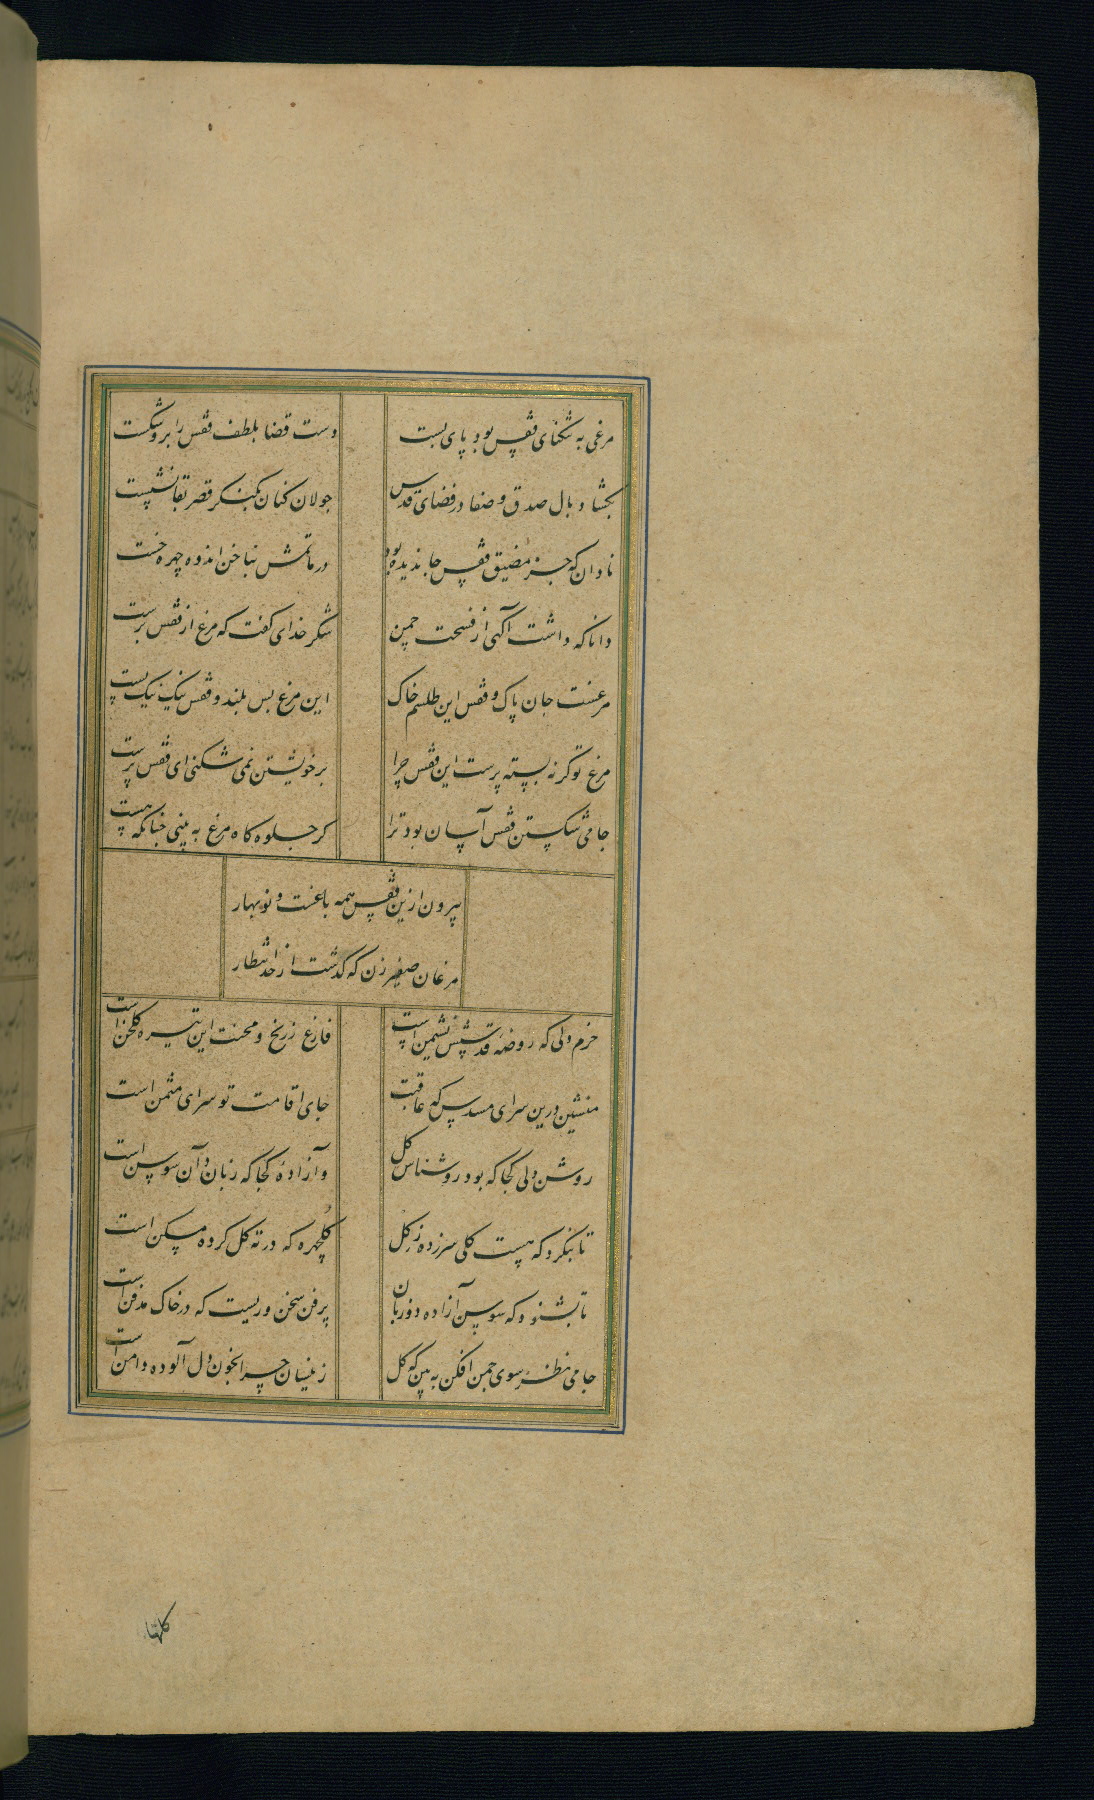 مرغی به تنکنای قفس بود پای بست دست قضا بلطف قفس را برو شکست
بکشاد بال صدق و صفا در فضای قدس جولان کنان بکنکر قصر بقا نشست
نادان که جز مضیق قفس جا ندیده بود در ماتمش بناخن اندوه چهره خست
دانا که داشت آکهی از فسحت چمن شکر خدای کفت که مرغ از قفس برست
مرغست جان پاک و قفس این طلسم خاک این مرغ بس بلند و قفس نیک نیک پست
مرغ تو کر نه بسته پرست این قفس چرا بر خویشتن نمی شکنی ای قفس پرست
جامی شکستن قفس آسان بود ترا کر جلوه کاه مرغ به بینی چنانکه هست
بیرون ازین قفس همه باغست و نوبهار
مرغان صفیر زن که کذشت از حد انتظار
خرم دلی که روضه قدسش نشیمن است فارغ ز رنج و محنت این تیره کلخن است
منشین درین سرای مسدس که عاقبت جای اقامت تو سرای مثمن است
روشن دلی کجا که بود روشناس کل و آزاده کجا که زبان دان سوسن است
تا بنکرد که هست کلی سر زده ز کل کلچهره که در ته کل کرده مسکن است
تا بشنود که سوسن آزاده دو زبان پر فن سخن وریست که در خاک مدفن است
جامی نظر سوی چمن افکن به بین که کل زینسان چرا بخون دل آلوده دامن است
کلها